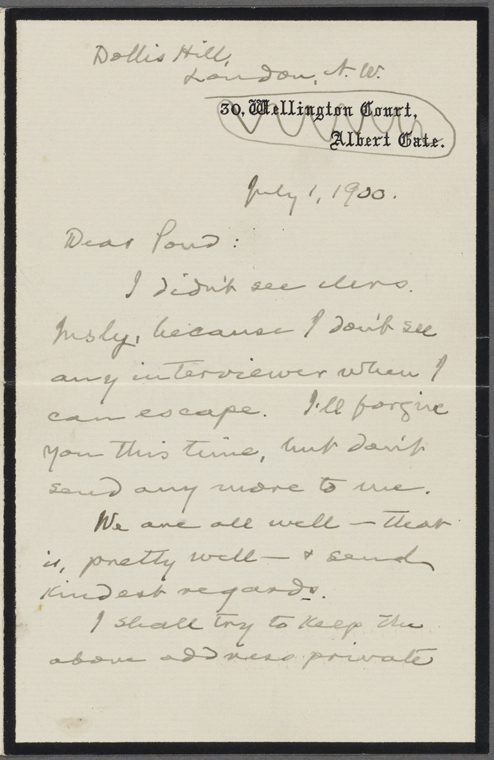 Dollis Hill,
London, N.W.
30, Wellington Court,
Albert Gate.
July 1, 1900.
Dear Pond:
I didn't see Mrs.
because I don't see
any interviewer when I
can escape. I'll forgive
you this time, but don't
send any more to me.
We are all well — that
is, pretty well — & send
kindest regards.
I shall try to keep the
above address private